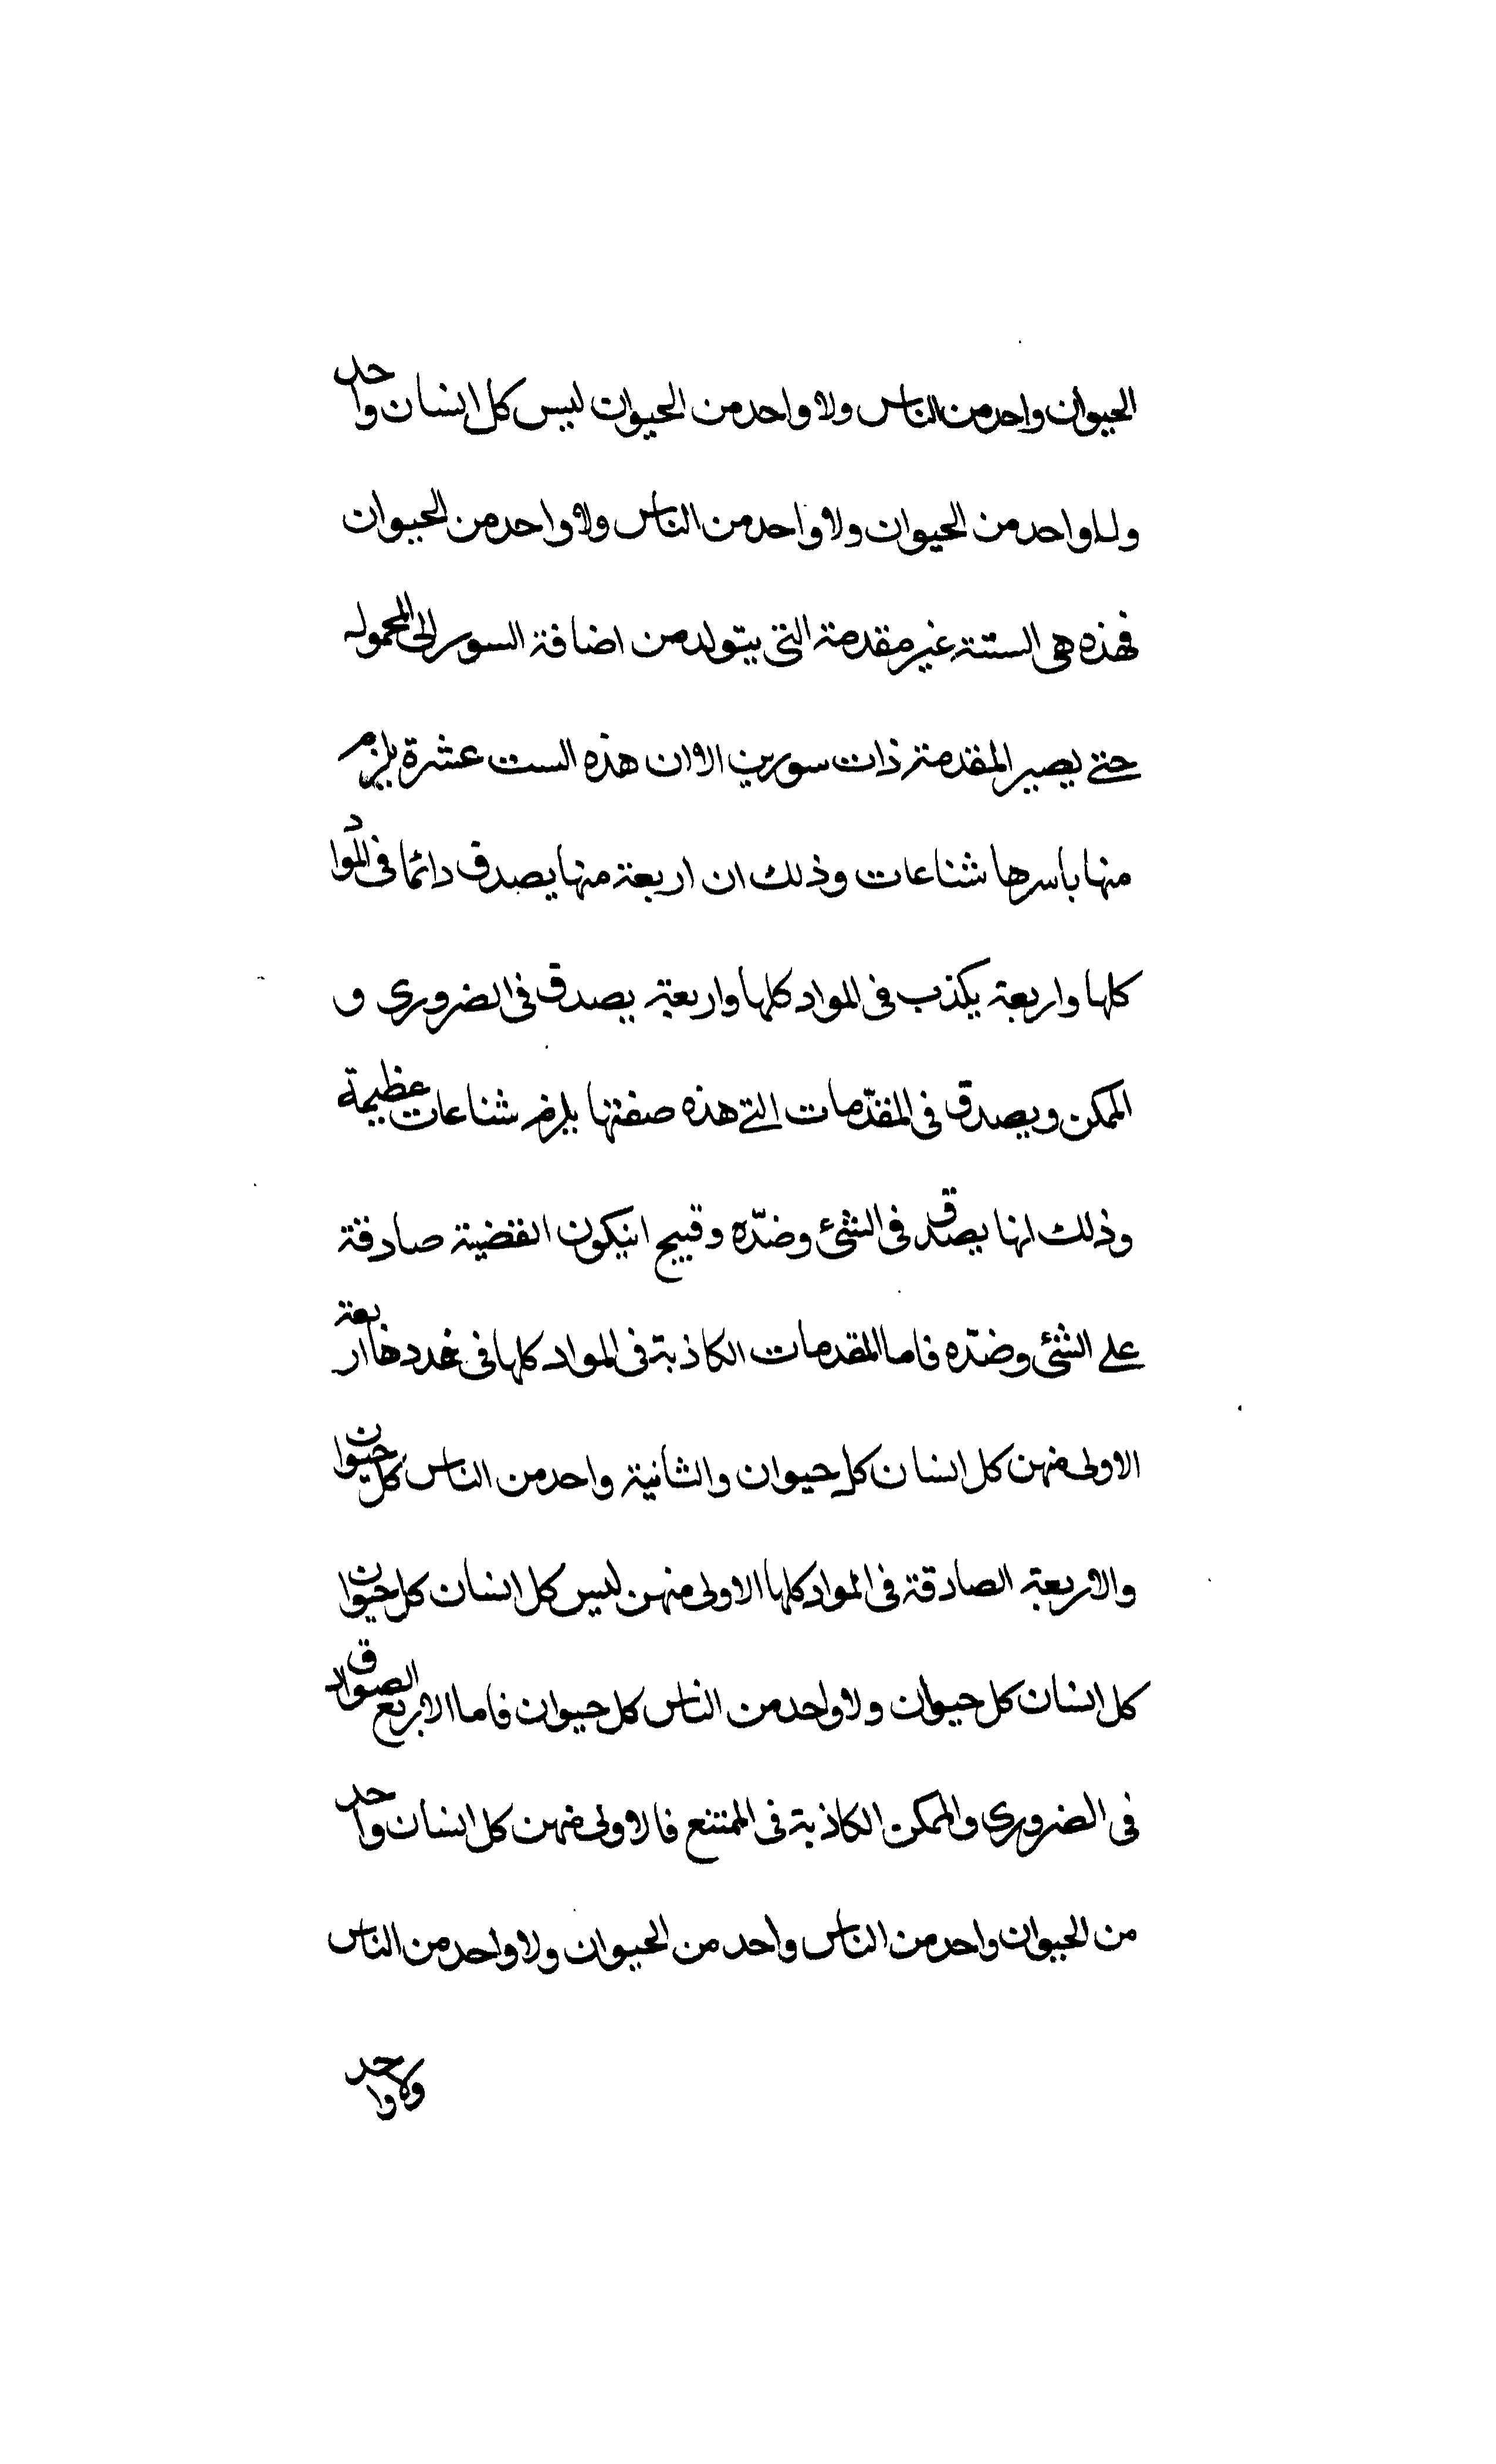 الحيوان واحد من الناس ولا واحد من الحيوان ليس كل انسان واحد
واحد من الحيوان ولا واحد من الناس ولا واحد من الحيوان
فهذه هى الستة غير مقدمة التى يتولد من اضافة السور الى المحموله
حتى يصير المقدمة ذات سورين الا ان هذه الست عشرة يلزم
منها باسرها شناعات وذلك ان اربعة منها يصدق دائما فى المواد
كلها واربعة يكذب فى المواد كلها واربعة يصدق فى الضرورى و
الممكن ويصدق فى المقدّمات التى هذه صفتها يلزم شناعات عظيمة
وذلك انها يصدق فى الشئ وضدّه وقبيح انيكون القضية صادقة
على الشئ وضدّه فاما المقدمات الكاذبة فى المواد كلها فى اربعة
الاولى منهن كل انسان كل حيوان والثانية واحد من الناس كل حيوان
والاربعة الصادقة فى المواد كلها الاولى منهن ليس كل انسان كل حيوان
كل انسان كل حيوان ولا واحد من الناس كل حيوان فاما الاربع الصوادق
فى الضرورى والممكن الكاذبة فى الممتنع فالاولى منهن كل انسان واحد
من الحيوان واحد من الناس واحد من الحيوان ولا واحد من الناس
ولا واحد